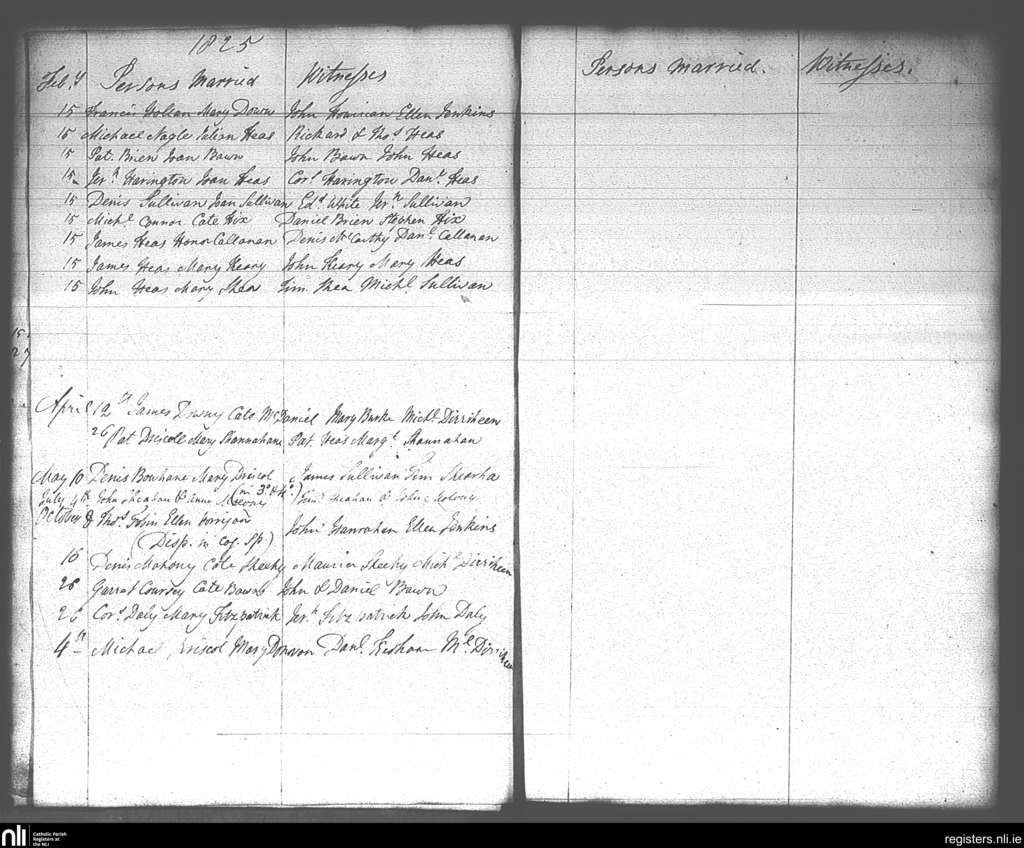 1825
Feb.y Persons Married Witnesses
15 Francis Mary Down John Ellen Jenkins
15 Michael Nagle Heas Richard & Thos Heas
15 Pat. Brien Joan Bawn John Bawn John Heas
15 Jerh Harington Joan Heas Cors Harington Danl Heas
15 Denis Sullivan Joan Sullivan Edd White Jerh Sullivan
15 Michl Connor Cate Hix Daniel Brien Stephen Hix
15 James Heas Honor Callanan Denis McCarthy Danl Callanan
15 James Heas Mary Keary John Keary Mary Heas
15 John Heas Mary Shea Tim. Shea Michl Sullivan
15
27
April 12th James Downy Cate McDaniel Mary Burke Michl Dirriheen
26 Pat Driscoll Mary Shannahane Pat. Heas Margt Shannahan
May 10 Denis Bowhane Mary Driscol James Sullivan Tim
(in 3o & 4o)
July 4th John Sheahan & Anne Timy Sheahan & John Molony
October 8 Thos Tobin Ellen John Hanrahan Ellen Jenkins
(Disp. in Cog. Sp.)
16 Denis Mahony Cate Sheehy Maurice Sheehy Michl Dirriheen
26 Garrat Coursey Cate Bawn John & Daniel Bawn
26 Cors Daly Mary Fitzpatrick Jerh Fitzpatrick John Daly
4th Michael Driscol Mary Donovan Danl Ml Dirriheen
Persons Married. Witnesses.
nli
Catholic Parish
Registers at
the NLI
registers.nli.ie